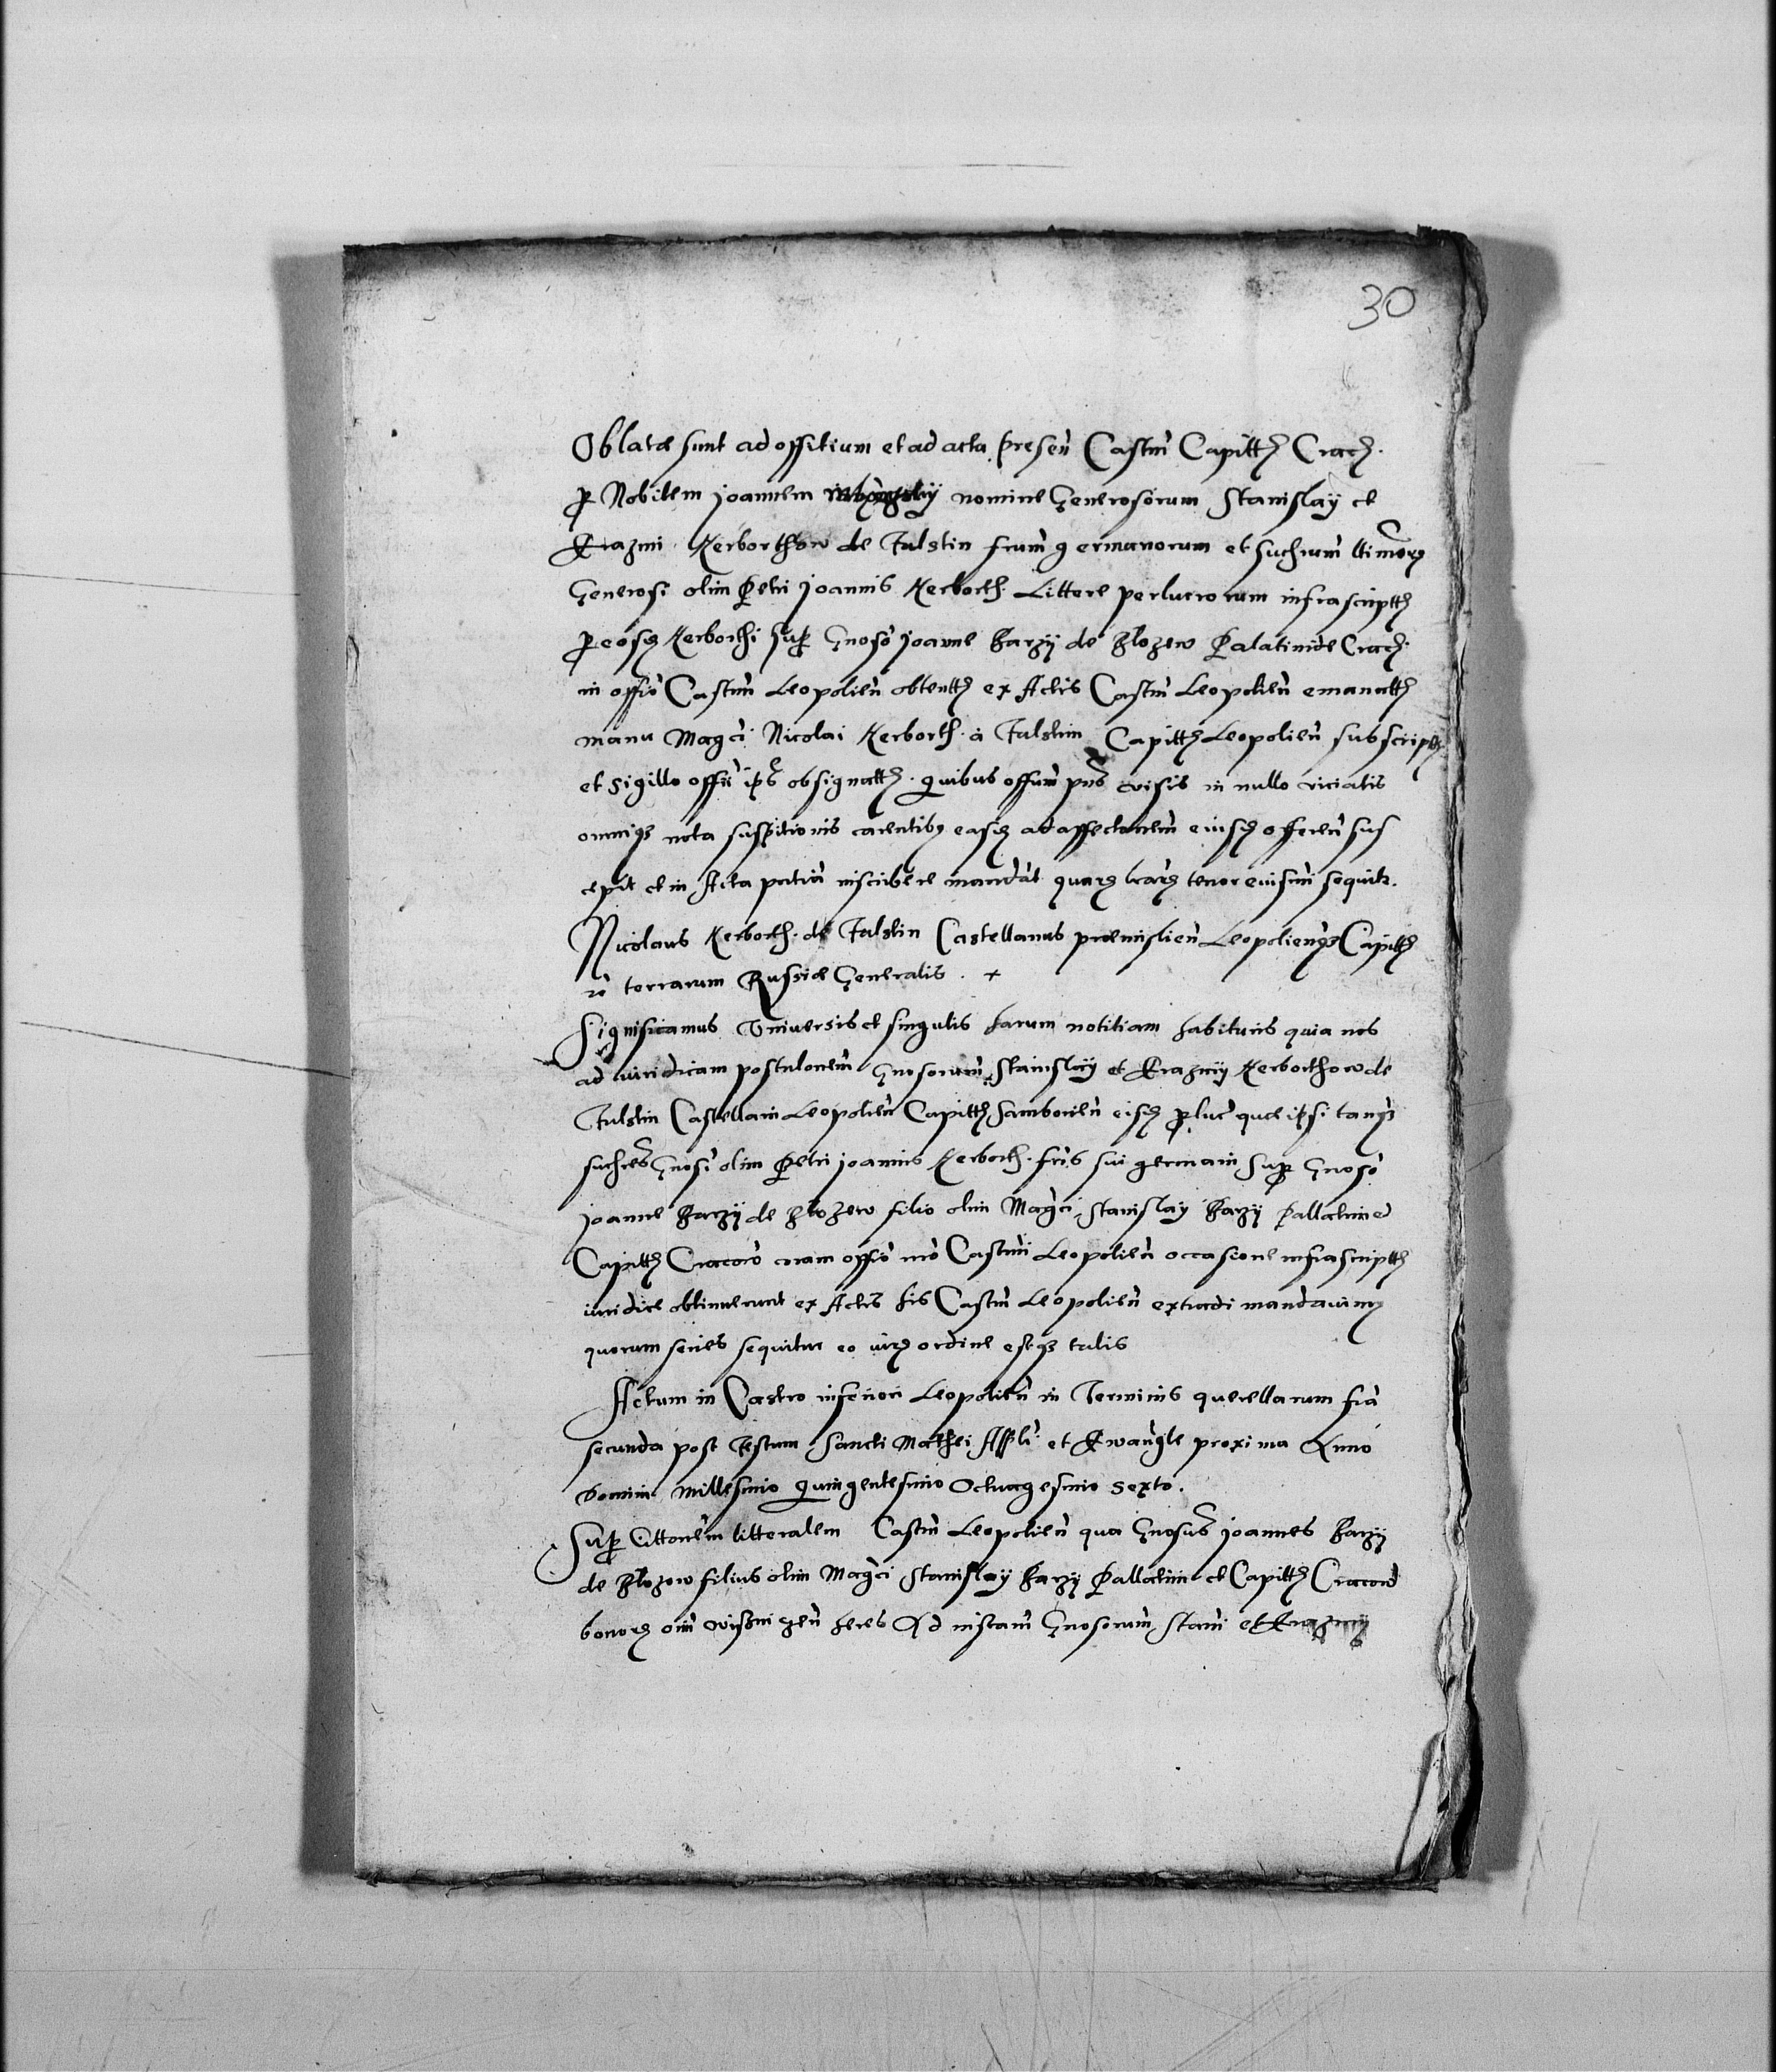 30
Oblatæ sunt ad offitium et ad acta presen̄ Castrn̄ Capittꝭ Cracꝭ.
ꝑ Nobilem Joannem nomine Generosorum Stanislaÿ et
Erazmi Herborthow de Fulstin frum̄ germanorum et suchrum̄
Generosi olim Petri Joannis Herborth. Littere perlucrorum infrascriptꝭ
ꝑ eosꝫ Herborthi Suꝑ Gnoso Joanne Barzÿ de Blozew Palatinide Cracꝭ.
in offio Castrn̄ Leopolien̄ obtentꝭ ex Actis Castrn̄ Leopolien̄ emanattꝭ
manu Magci Nicolai Herborth. à Fulstin Capittꝭ Leopolien̄ subscriptꝭ
et sigillo offii ips obsignattꝭ. quibus offium pns̄ visis in nullo viciatis
omniqꝫ nota suspitionis carentibꝫ easꝫ ad affectanem̄ eiusꝫ offeren̄ sus
cepit et in Acta inscribere mandat quarꝫ lrarꝫ tenor eiusmi sequitr.
Nicolaus Herborth. de Fulstin Castellanus præmislien̄ Leopolien̄qꝫ Capittꝭ
terrarum Russiæ Generalis. +
Significamus Vniuersis et singulis harum notitiam habituris quia nos
ad iuridicam postulonem̄ Gnosorum̄ Stanislaÿ et Erazmÿ Herborthow de
Fulstin Castellani Leopolien̄ Capittꝭ Samborien̄ eisꝫ ꝑluc̄ quæ ipsi tanqꝫ
suchres̄ Gnosi olim Petri Joannis Herborth. fris sui germani Suꝑ Gnoso
Joanne Barzÿ de Blozew filio olim Magci Stanislaÿ Barzÿ Pallatini et
Capittꝭ Craccou coram offio nro Castrn̄i Leopolien̄ occasione infrascriptꝭ
iuridice obtinuerunt ex Actis his Castrn̄ Leopolien̄ extradi mandauimꝫ
quorum series sequitur eo iurꝫ ordine estqꝫ talis
Actum in Castro inferiori Leopolien̄ in Terminis querellarum fria
secunda post Festum Sancti Mathei Appli et Ewangle proxima Anno
Domini Millesimo quingentesimo Octuagesimo sexto.
Suꝑ Cittonem̄ litteralem Castrn̄ Leopolien̄ qua Gnosus̄ Joannes Barzÿ
de Blozew filius olim Magci Stanislaÿ Barzÿ Pallatini et Capittꝭ Craccou
bonorꝫ oim̄ heres Ad instam̄ Gnosorum̄ Stani et Erazmÿ